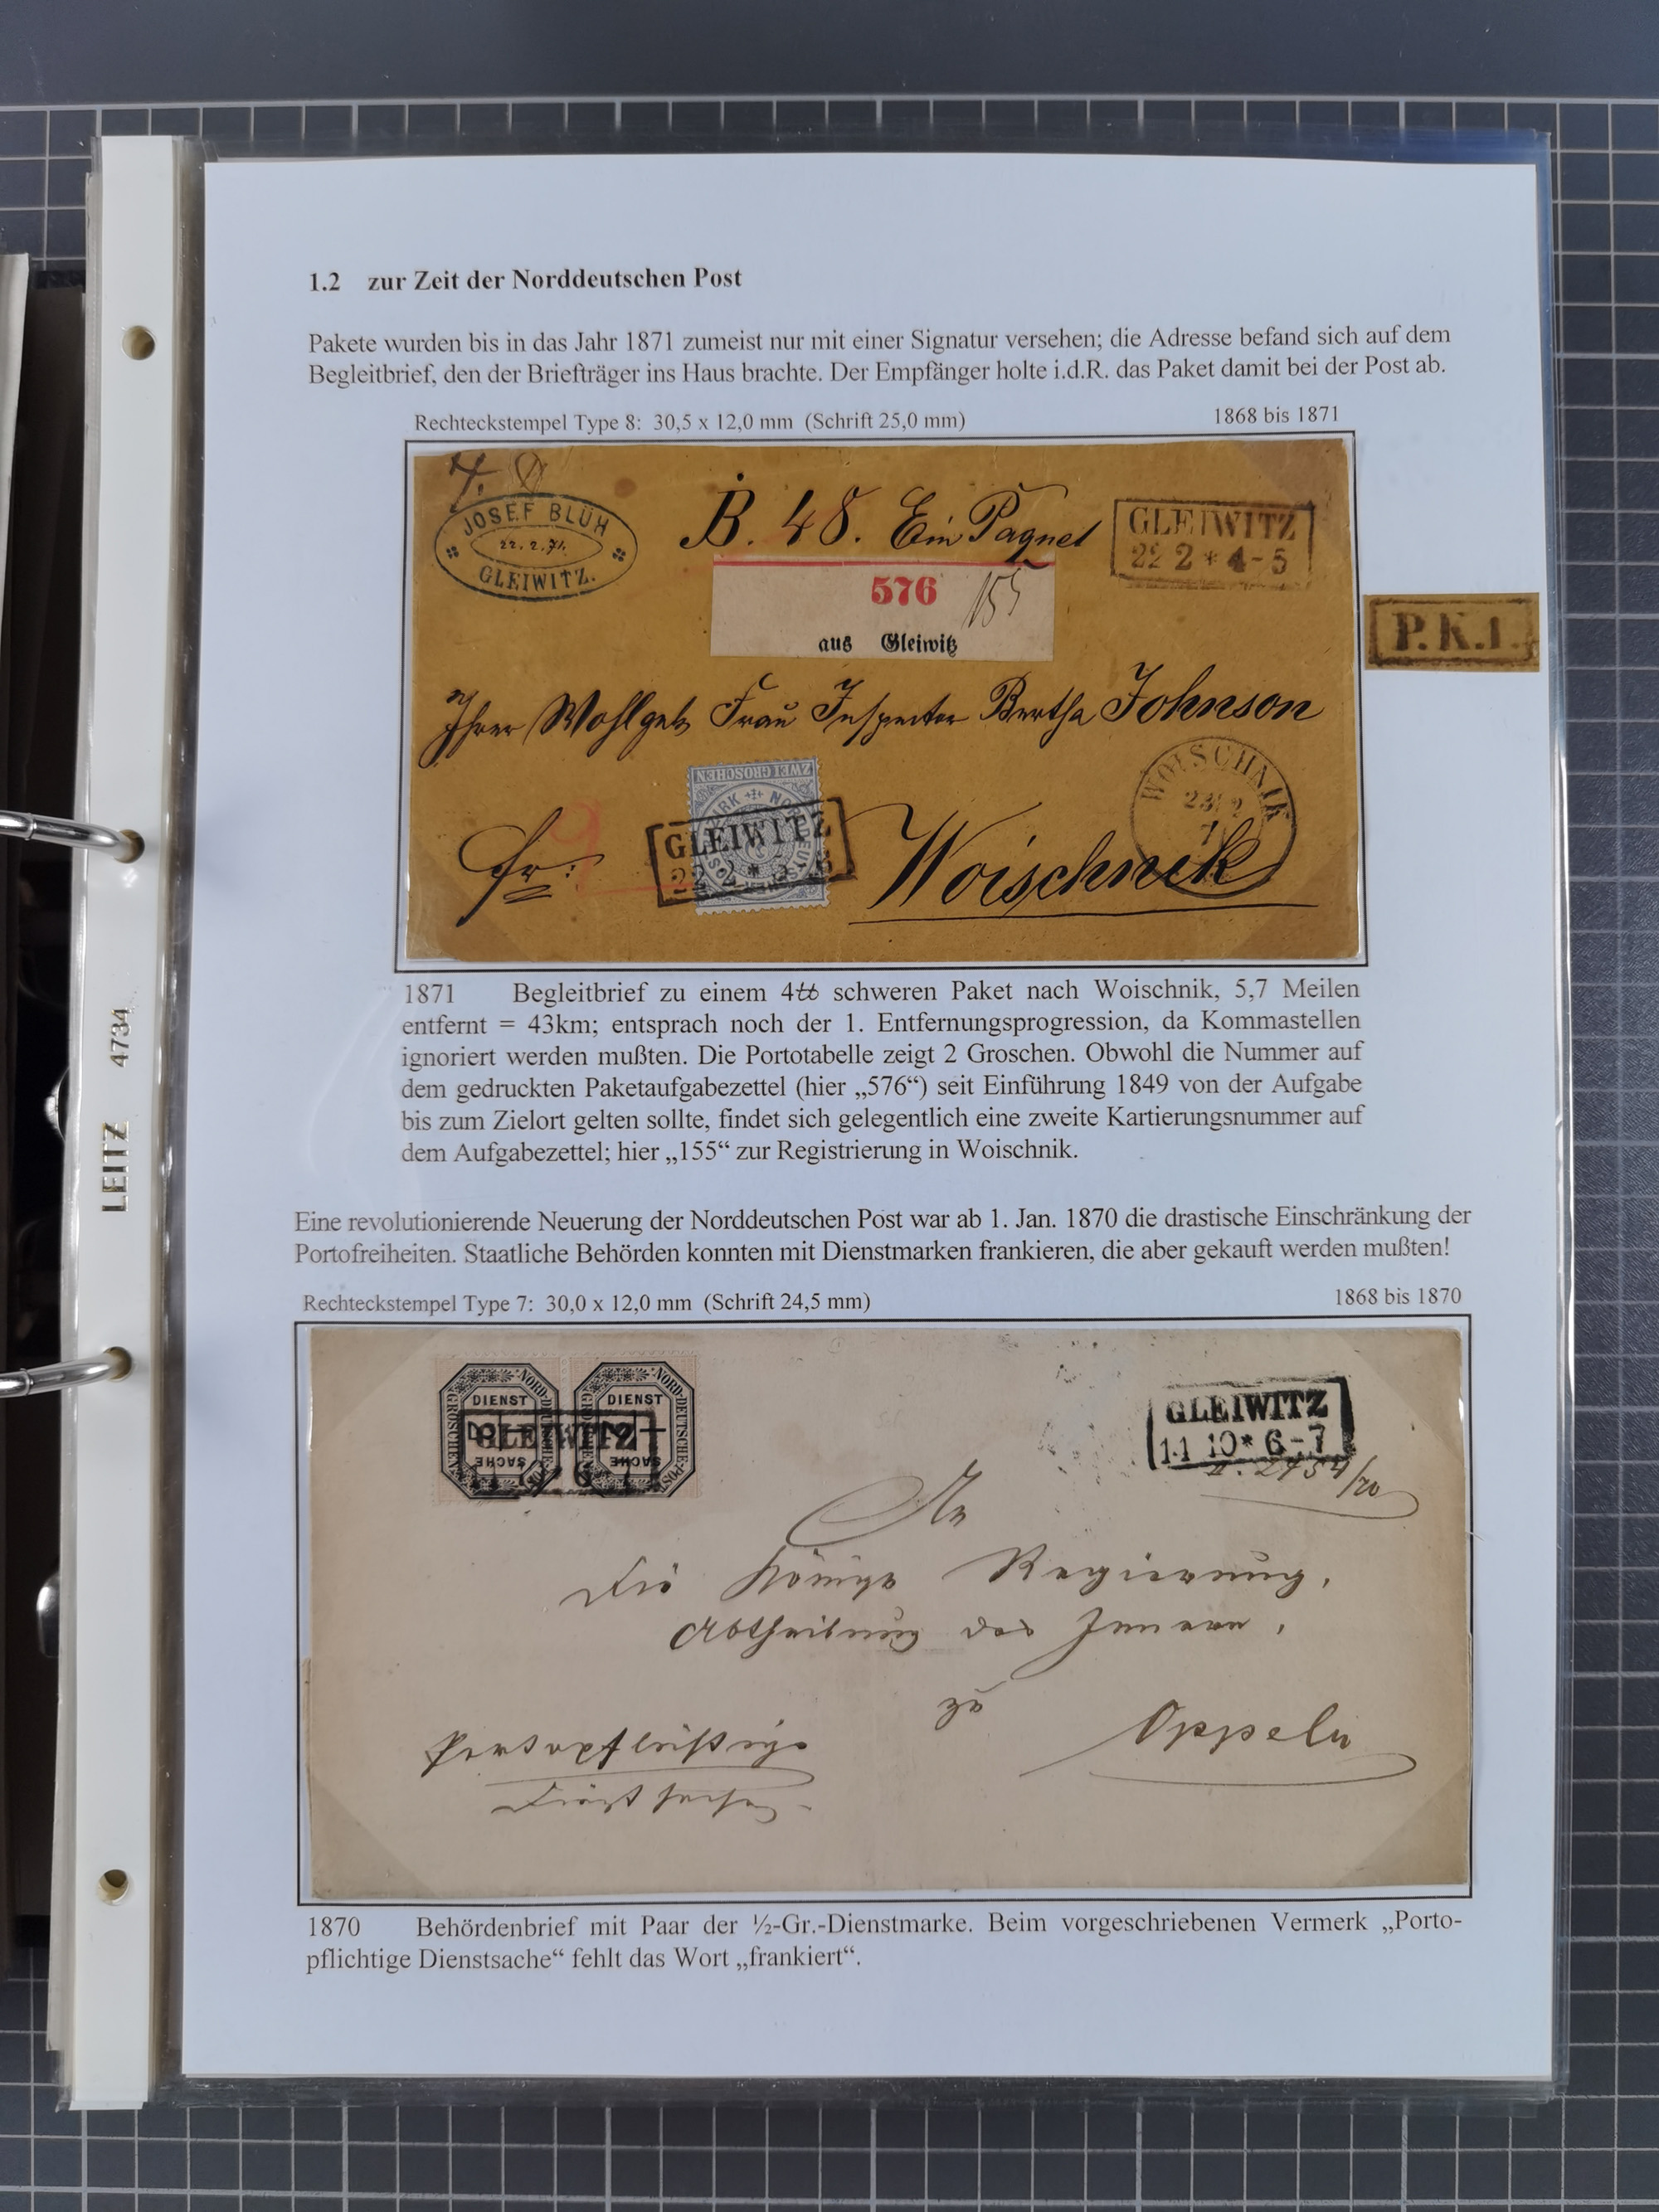 1.2 zur Zeit der Norddeutschen Post
Pakete wurden bis in das Jahr 1871 zumeist nur mit einer Signatur versehen; die Adresse befand sich auf dem
Begleitbrief, den der Briefträger ins Haus brachte. Der Empfänger holte i.d.R. das Paket damit bei der Post ab.
Rechteckstempel Type 8: 30,5 x 12,0 mm (Schrift 25,0 mm)
1868 bis 1871
JOSEF BLÜH
22. 2. 71.
GLEIWITZ.
B. 48. Ein Paquet
GLEIWITZ
22 2 * 4-5
576
155
aus Gleiwitz
P.K.1.
Ihrer Wohlgeb Frau Inspector Bertha Johnson
ZWEI GROSCHEN
GLEIWITZ
22 2 *
WOISCHNIK
23 2
71
fr:
Woischnik
1871 Begleitbrief zu einem 4℔ schweren Paket nach Woischnik, 5,7 Meilen
entfernt = 43km; entsprach noch der 1. Entfernungsprogression, da Kommastellen
ignoriert werden mußten. Die Portotabelle zeigt 2 Groschen. Obwohl die Nummer auf
dem gedruckten Paketaufgabezettel (hier „576“) seit Einführung 1849 von der Aufgabe
bis zum Zielort gelten sollte, findet sich gelegentlich eine zweite Kartierungsnummer auf
dem Aufgabezettel; hier „155“ zur Registrierung in Woischnik.
Eine revolutionierende Neuerung der Norddeutschen Post war ab 1. Jan. 1870 die drastische Einschränkung der
Portofreiheiten. Staatliche Behörden konnten mit Dienstmarken frankieren, die aber gekauft werden mußten!
Rechteckstempel Type 7: 30,0 x 12,0 mm (Schrift 24,5 mm)
1868 bis 1870
NORD-DEUTSCHE-POST
DIENST
SACHE
GROSCHEN
NORD-DEUTSCHE-POST
DIENST
SACHE
GLEIWITZ
GLEIWITZ
11 10 * 6-7
An
die Königl Regierung,
Abtheilung des Innern,
zu
Oppeln
Portopflichtige
Dienstsache
1870 Behördenbrief mit Paar der ½-Gr.-Dienstmarke. Beim vorgeschriebenen Vermerk „Porto-
pflichtige Dienstsache“ fehlt das Wort „frankiert“.
LEITZ 4734